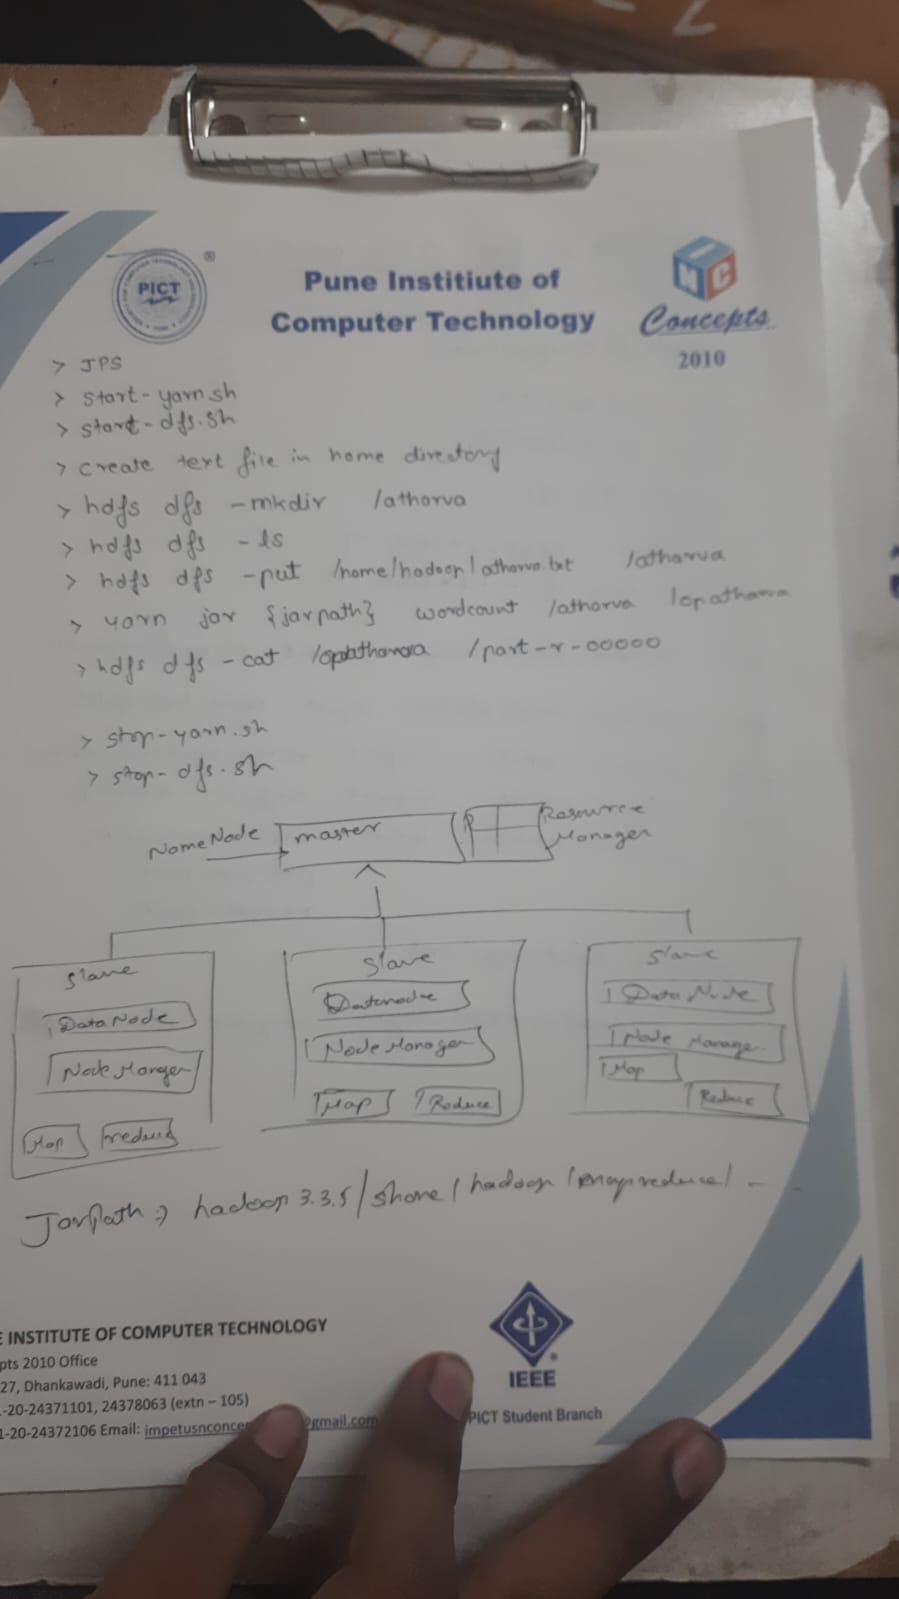 PICT
Pune Institiute of
Computer Technology
INC
Concepts
2010
> JPS
> start-yarn.sh
> start-dfs.sh
> create text file in home directory
> hdfs dfs -mkdir /athorva
> hdfs dfs -ls
> hdfs dfs -put /home/hadoop/athorva.txt /atharva
> yarn jar {jarpath} wordcount /athorva /opatharva
> hdfs dfs -cat /part-r-00000
> stop-yarn.sh
> stop-dfs.sh
NameNode master Resource
Manager
Slave Slave Slave
DataNode Datanode DataNode
Node Manger Node Manager Node Manage
Map reduce Map Reduce Map
Reduce
JarPath => hadoop 3.3.5/share/hadoop/mapreduce/
E INSTITUTE OF COMPUTER TECHNOLOGY
pts 2010 Office
27, Dhankawadi, Pune: 411 043
-20-24371101, 24378063 (extn – 105)
-20-24372106 Email: impetusnconce @gmail.com
IEEE
PICT Student Branch